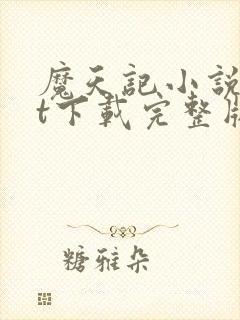 魔天記小說
t下載完整版
糖雅朵